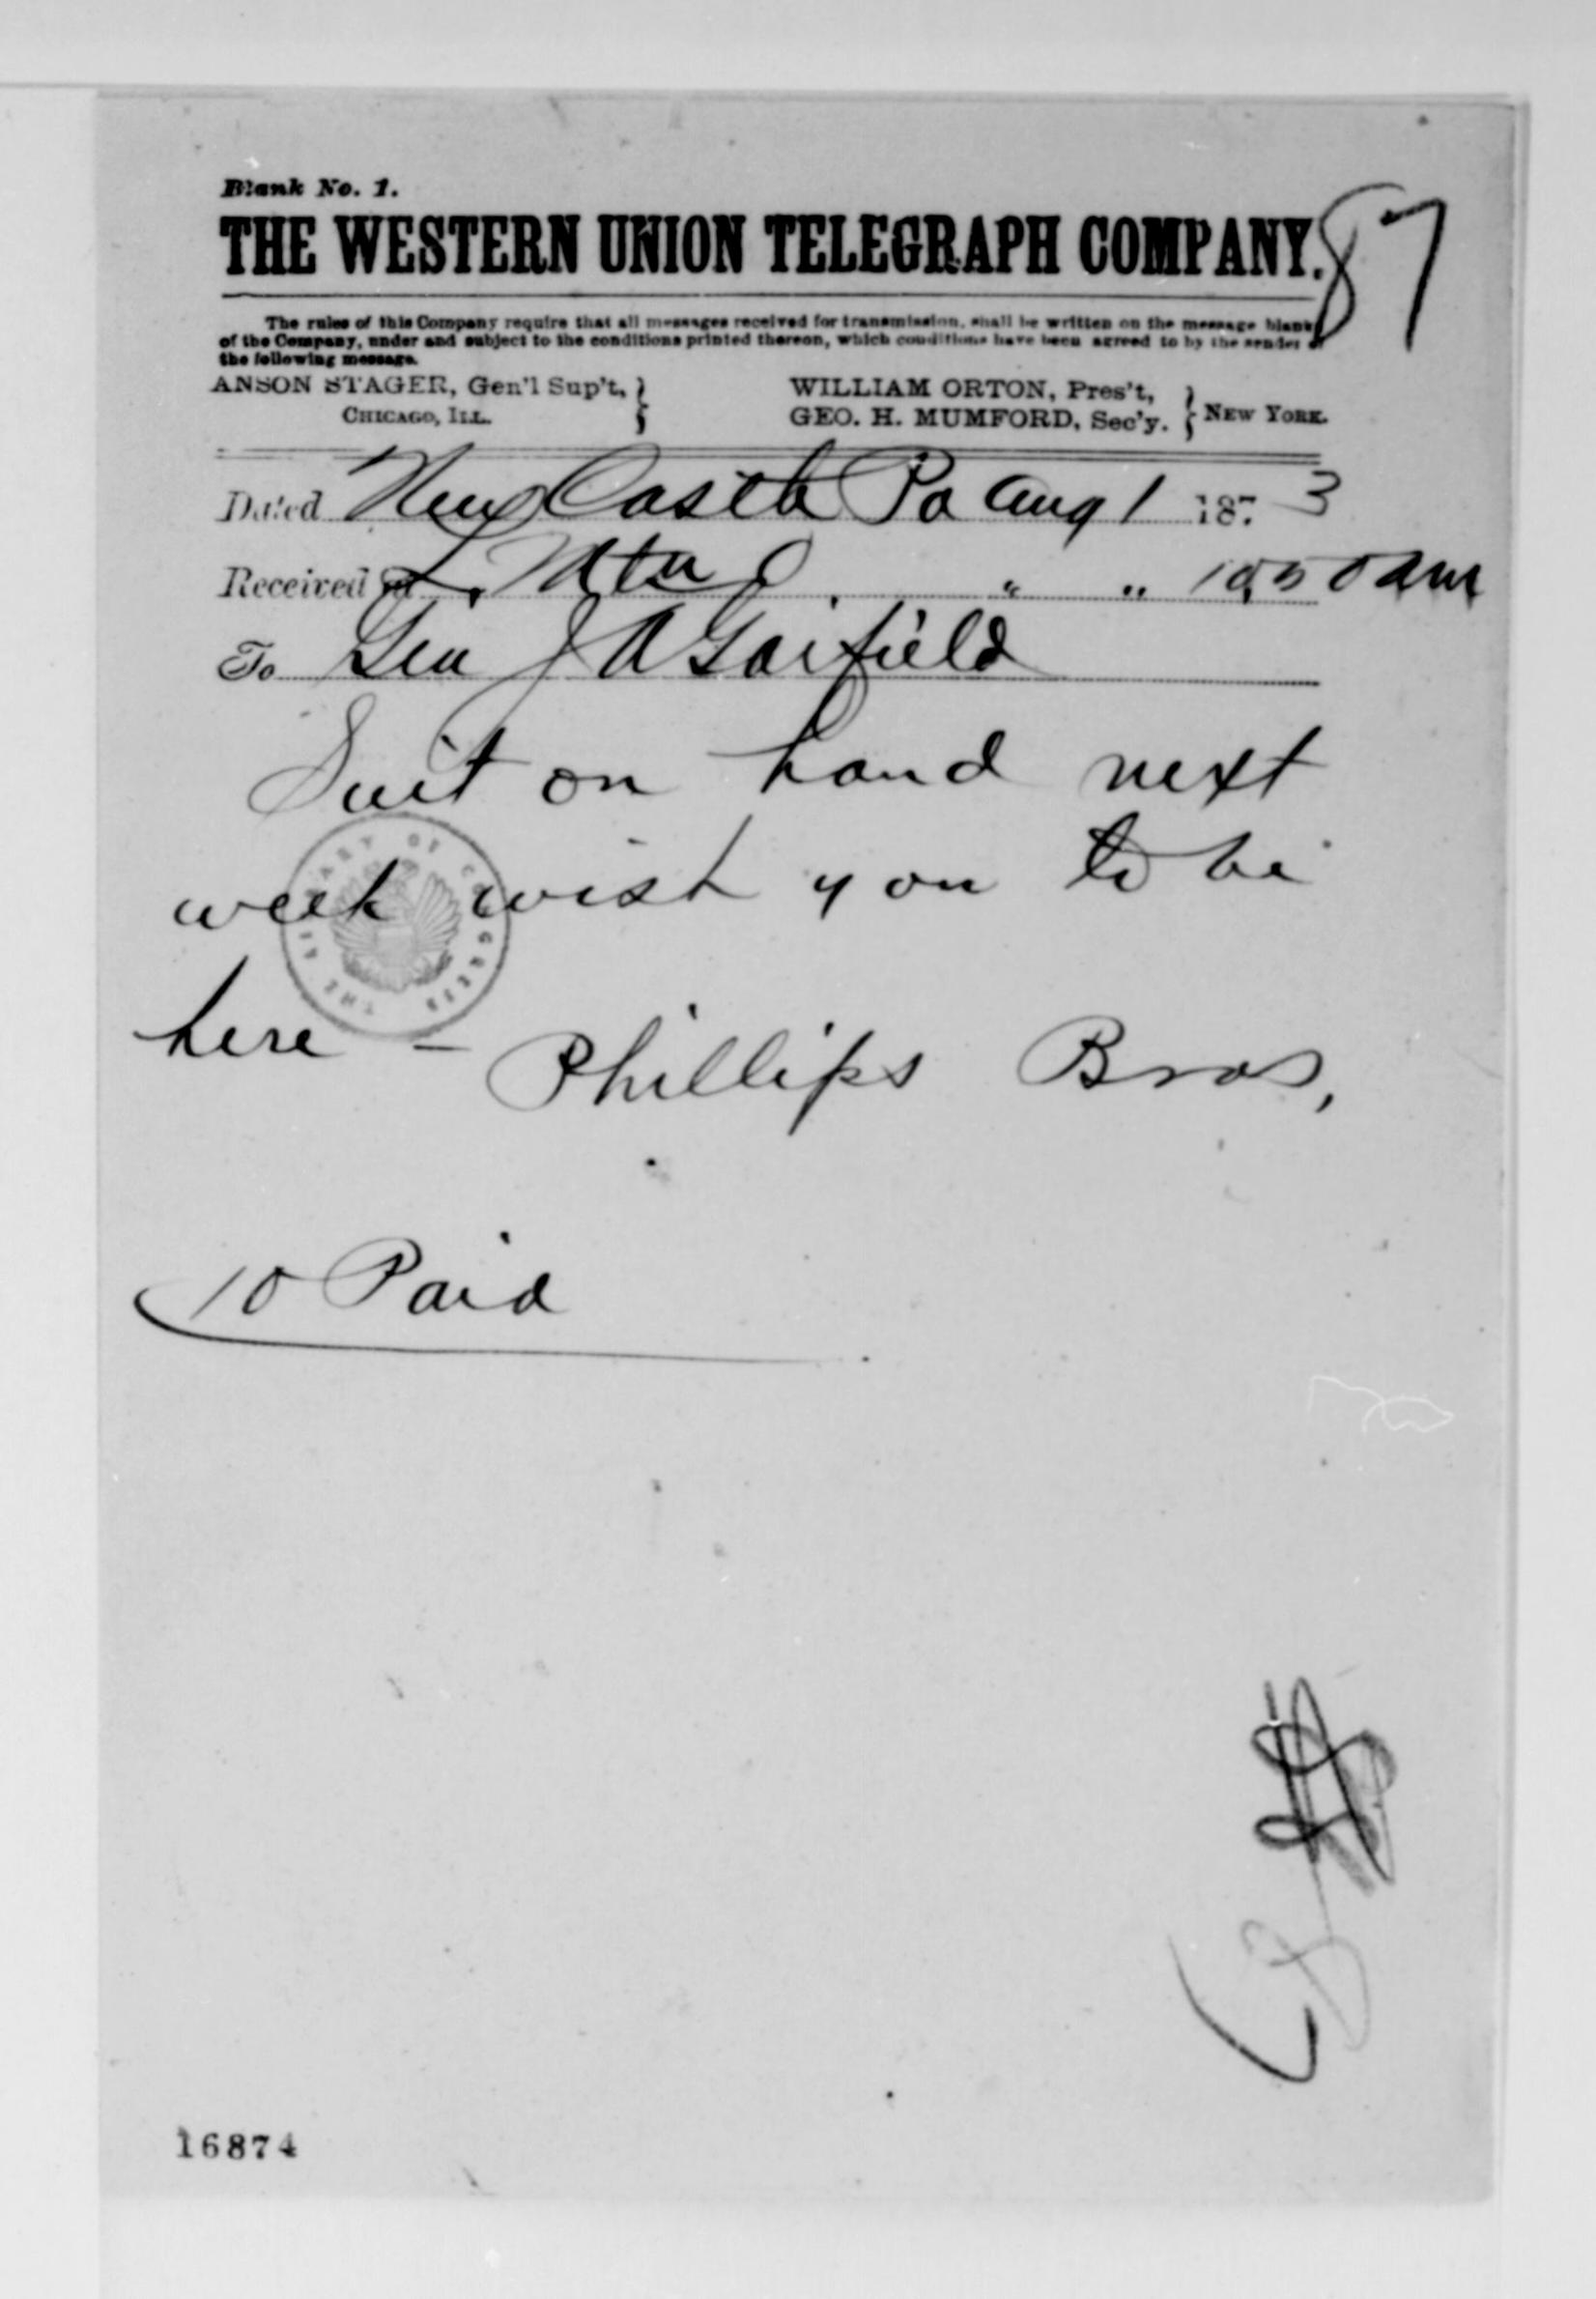 Blank No. 1.
87
THE WESTERN UNION TELEGRAPH COMPANY.
The rules of this Company require that all messages received for transmission, shall be written on the message blanks
of the Company, under and subject to the conditions printed thereon, which conditions have been agreed to by the sender of
the following message.
ANSON STAGER, Gen'l Sup't, WILLIAM ORTON, Pres't,
CHICAGO, ILL. GEO. H. MUMFORD, Sec'y. NEW YORK.
Dated New Castle Pa Aug 1 1873
Received at " " 10,50 am
To Gen J A Garfield
Suit on hand next
week wish you to be
here – Phillips Bros,
10 Paid
THE LIBRARY OF CONGRESS
16874